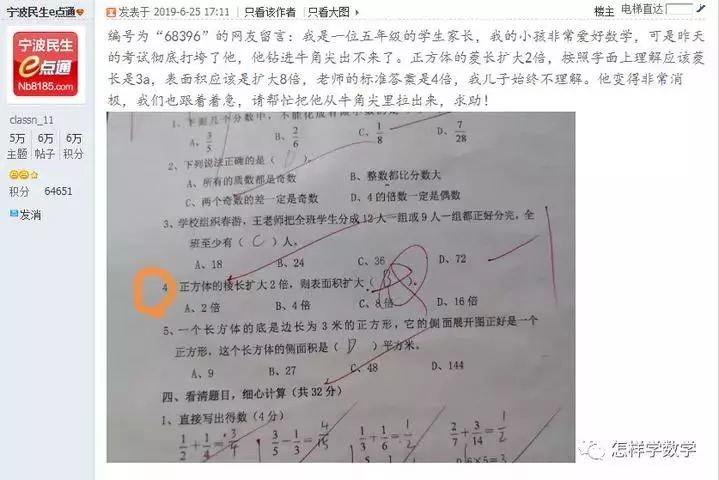 宁波民生e点通
发表于 2019-6-25 17:11 | 只看该作者 | 只看大图
楼主 电梯直达
宁波民生
e点通
Nb8185.com
classn_11
5万 6万 6万
主题 帖子 积分
积分 64651
发消
编号为“68396”的网友留言：我是一位五年级的学生家长，我的小孩非常爱好数学，可是昨天
的考试彻底打垮了他，他钻进牛角尖出不来了。正方体的菱长扩大2倍，按照字面上理解应该菱
长是3a，表面积应该是扩大8倍，老师的标准答案是4倍，我儿子始终不理解。他变得非常消
极，我们也跟着着急，请帮忙把他从牛角尖里拉出来，求助！
1、下面几个分数中，不能化成有限小数的是
A、3/5 B、2/6 C、1/8 D、7/28
2、下列说法正确的是（ D ）。
A、所有的质数都是奇数 B、整数都比分数大
C、两个奇数的差一定是奇数 D、4的倍数一定是偶数
3、学校组织春游，王老师把全班学生分成12人一组或9人一组都正好分完，全
班至少有（ C ）人。
A、18 B、24 C、36 D、72
4 正方体的棱长扩大2倍，则表面积扩大（ B ）。
A、2倍 B、4倍 C、8倍 D、16倍
5、一个长方体的底是边长为3米的正方形，它的侧面展开图正好是一个
正方形，这个长方体的侧面积是（ D ）平方米。
A、9 B、27 C、48 D、144
四、看清题目，细心计算（共32分）
1、直接写出得数（4分）
1/2+1/4=3/4 3/5-1/3=4/15 1/3+1/6=1/2 2/7+3/14=1/2
怎样学数学